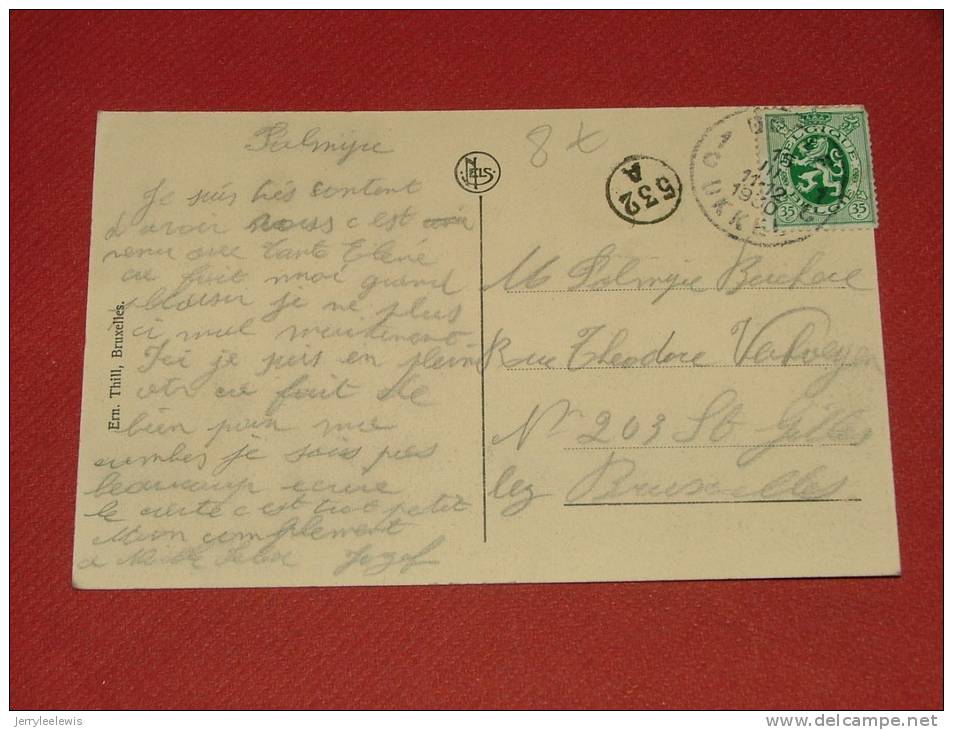 Palmyre
Je suis très content
d'avoir vous c'est
venu avec Tante Eléné
ca fait moi grand
plaisir je ne plus
ci mal maintenant
Ici je suis en plein
air ca fait de
bien pour me
jambes je sais pas
beaucoup ecrire
le carte c'est trot petit
Mon complement
a Jozef
Ern. Thill, Bruxelles.
NELS
8 x
532
A
UKKEL
11-12
1930
BELGIQUE
BELGIE
35 35
Palmyre
Rue Theodore
Nr 203 St Gilles
lez Bruxelles
Jerryleelewis
www.delcampe.net